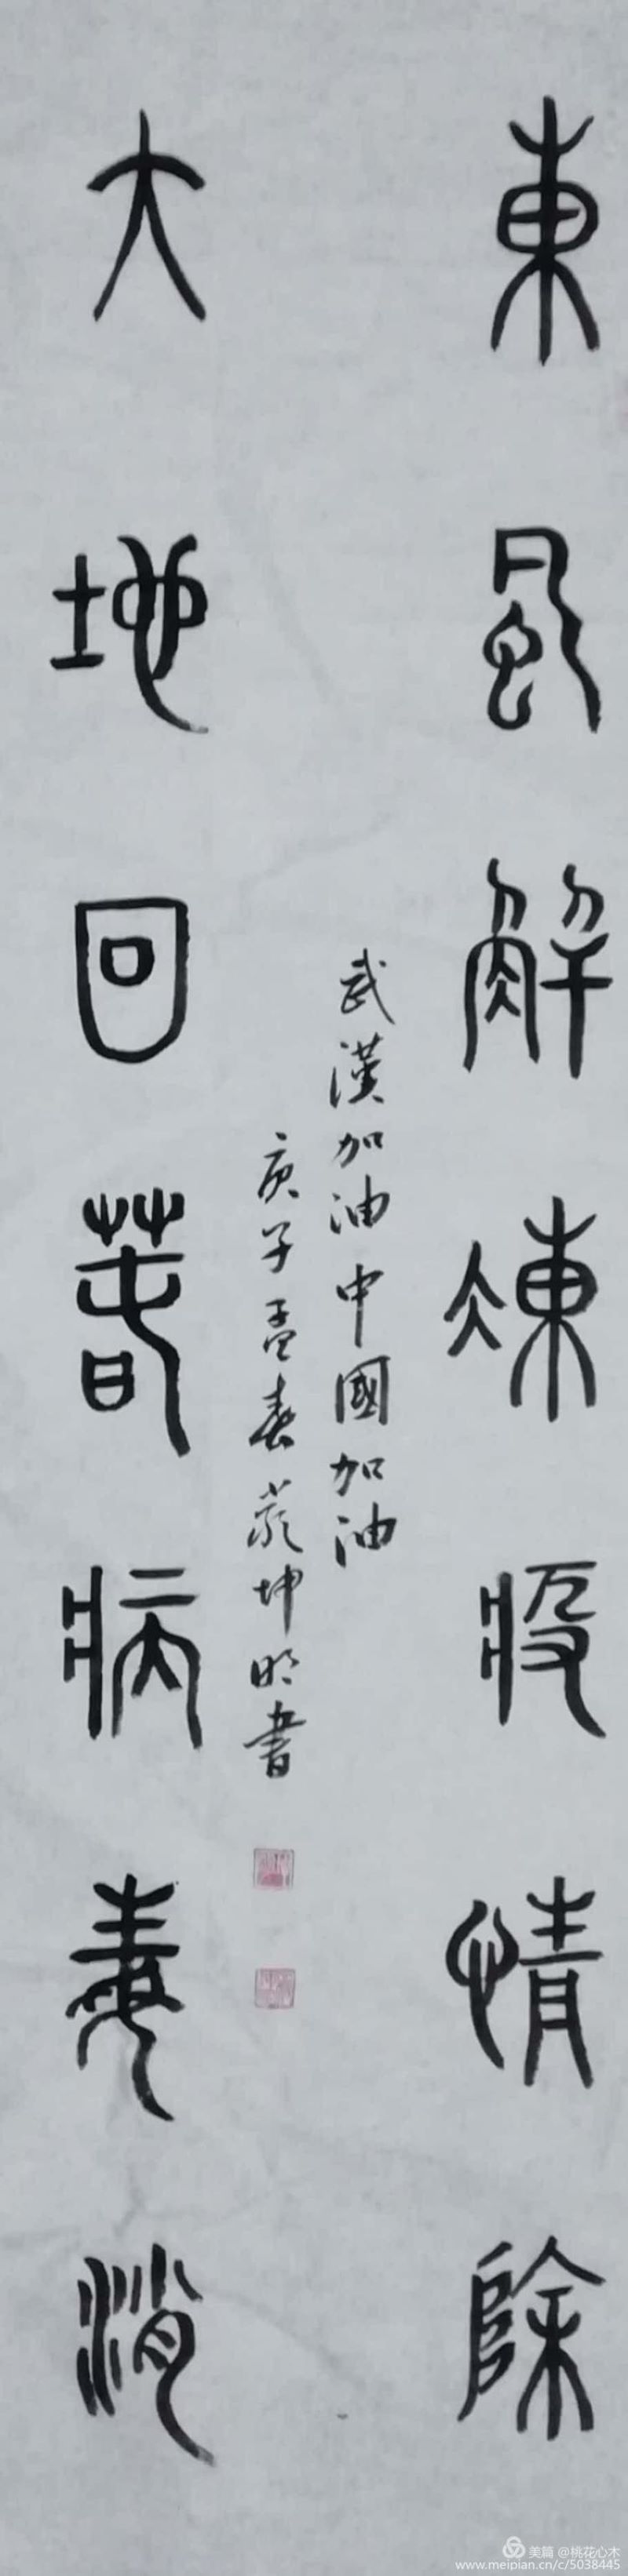 東風解凍疫情除
大地回春病毒消
武漢加油中國加油
庚子孟春嚴坤明書
美篇 @桃花心木
www.meipian.cn/c/5038445